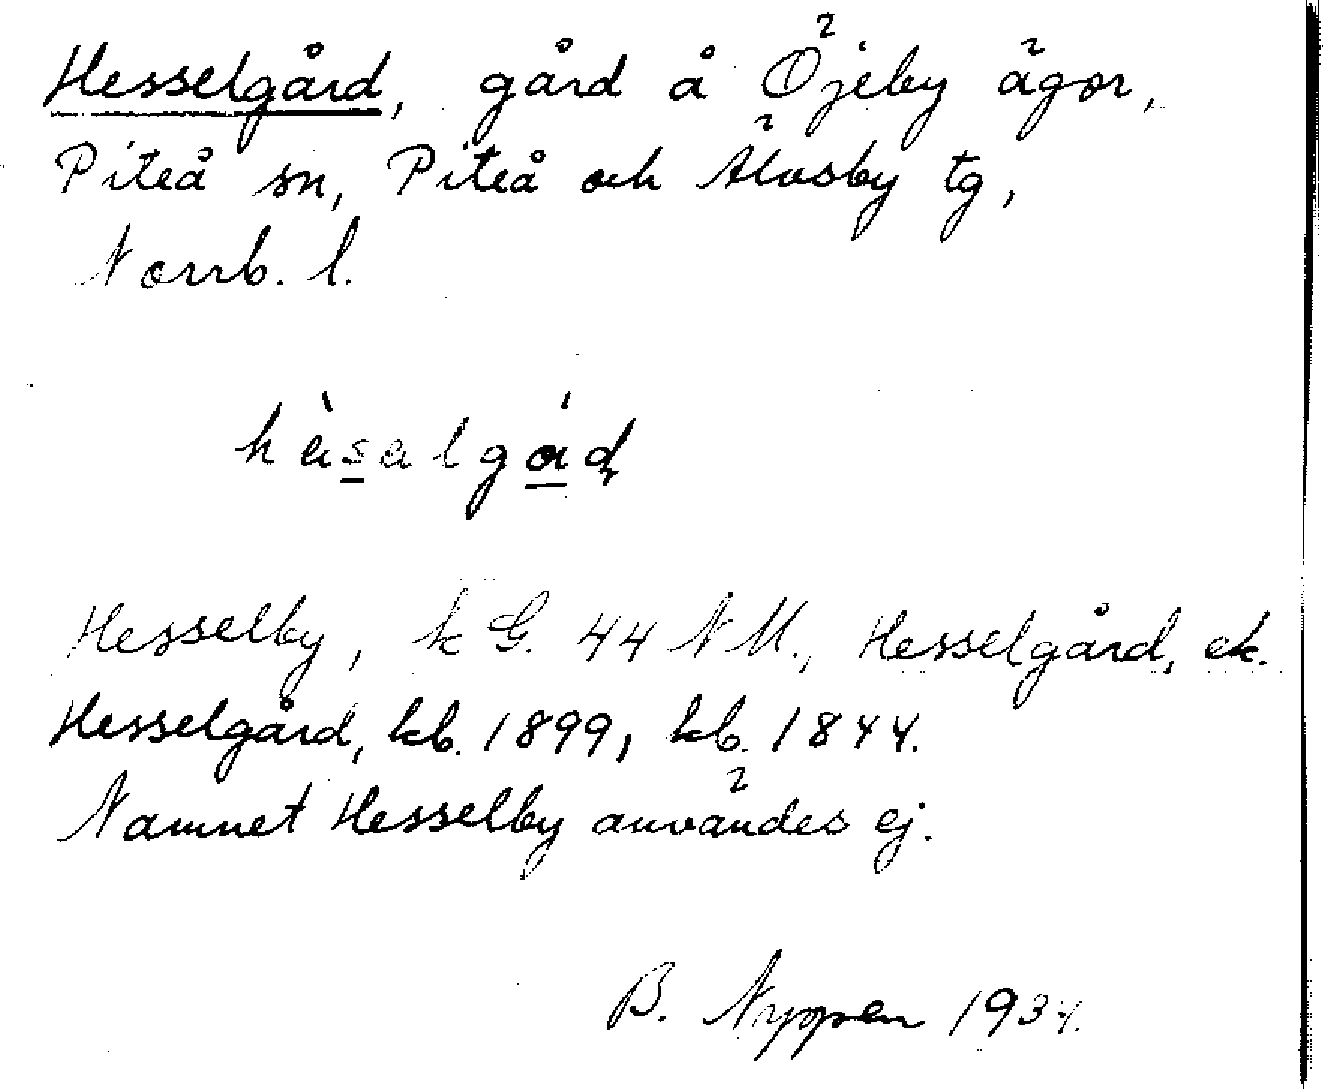 Hesselgård, gård å Öjeby ägor,
Piteå sn, Piteå och Älvsby tg,
Norrb. l.
hàsalgád
Hesselby, k G. 44 NM., Hesselgård, ek.
Hesselgård, kb. 1899, kb. 1844.
Namnet Hesselby användes ej.
B. Nyppen 1934.